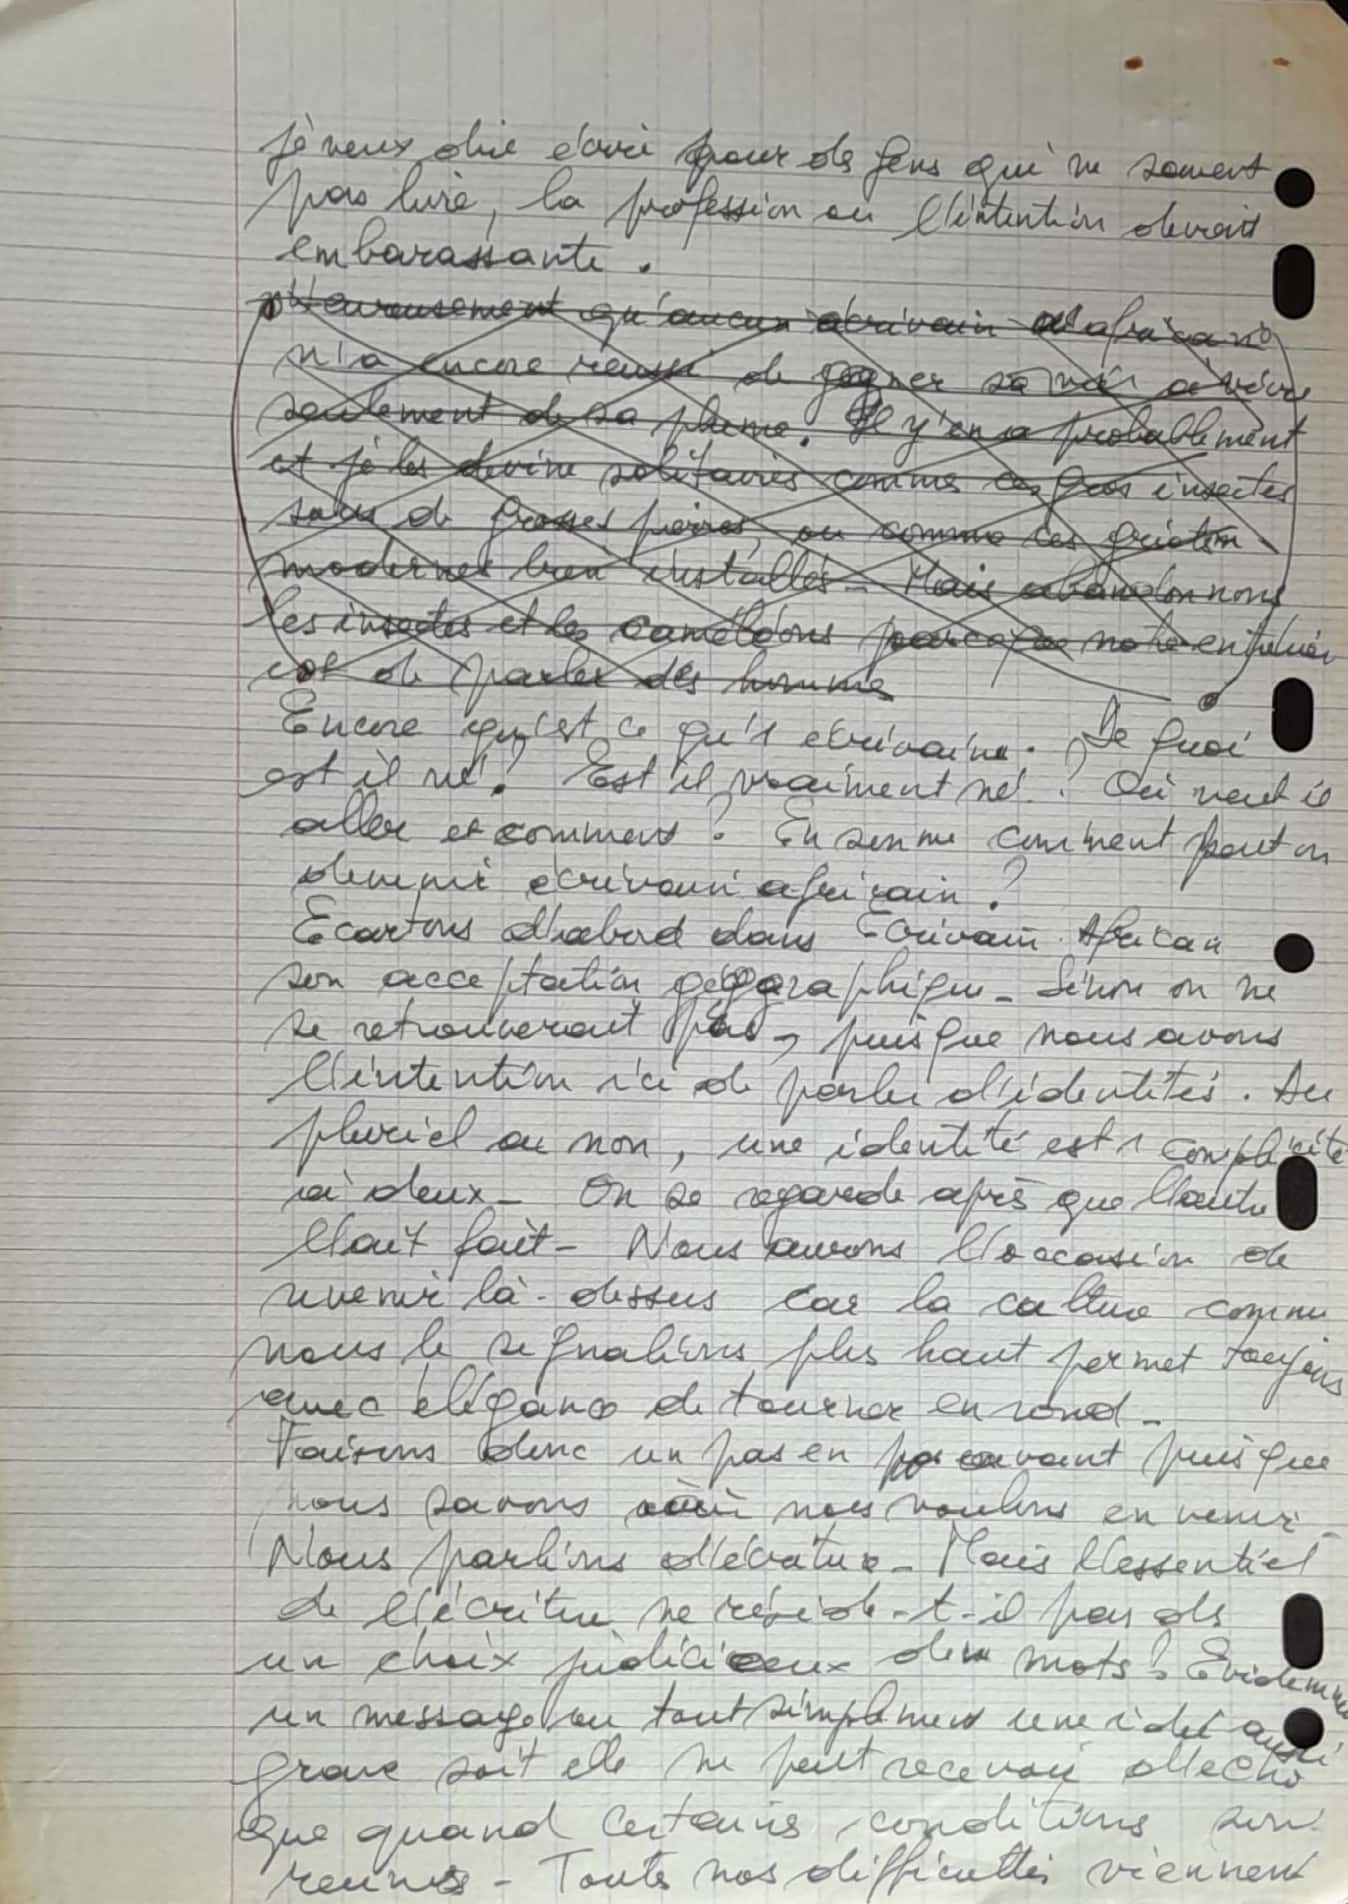 je veux dire écrire pour des gens qui ne savent
pas lire, la profession ou l'intention devrait
embarassante.
Heureusement qu'aucun écrivain africain
n'a encore réussi de gagner sa vie à vivre
seulement de sa plume. Il y'en a probablement
et je les devine solitaires comme ces gros insectes
sous de grosses pierres, ou comme ces griots
modernes bien installés - Mais abandonnons
les insectes et les caméléons parce que notre entretien
est de parler des hommes
Encore qu'est ce qu'1 écrivain. De quoi
est il né? Est il vraiment né? Où veut il
aller et comment? En somme comment peut on
devenir écrivain africain?
Ecartons d'abord dans Ecrivain Africain
son acceptation géographique - Sinon on ne
se retrouverait pas, puisque nous avons
l'intention ici de parler d'identités. Au
pluriel ou non, une identité est 1 complicité
à deux - On se regarde après que l'autre
l'ait fait - Nous aurons l'occasion de
revenir là-dessus car la culture comme
nous le signalions plus haut permet toujours
avec élégance de tourner en rond -
Faisons donc un pas en avant puisque
nous savons où nous voulons en venir -
Nous parlions d'écriture - Mais l'essentiel
de l'écriture ne réside-t-il pas ds
un choix judicieux des mots? Evidemme
un message ou tout simplement une idée aussi
grave soit elle ne peut recevoir d'écho
que quand certaines conditions son
réunies - Toutes nos difficultés viennent